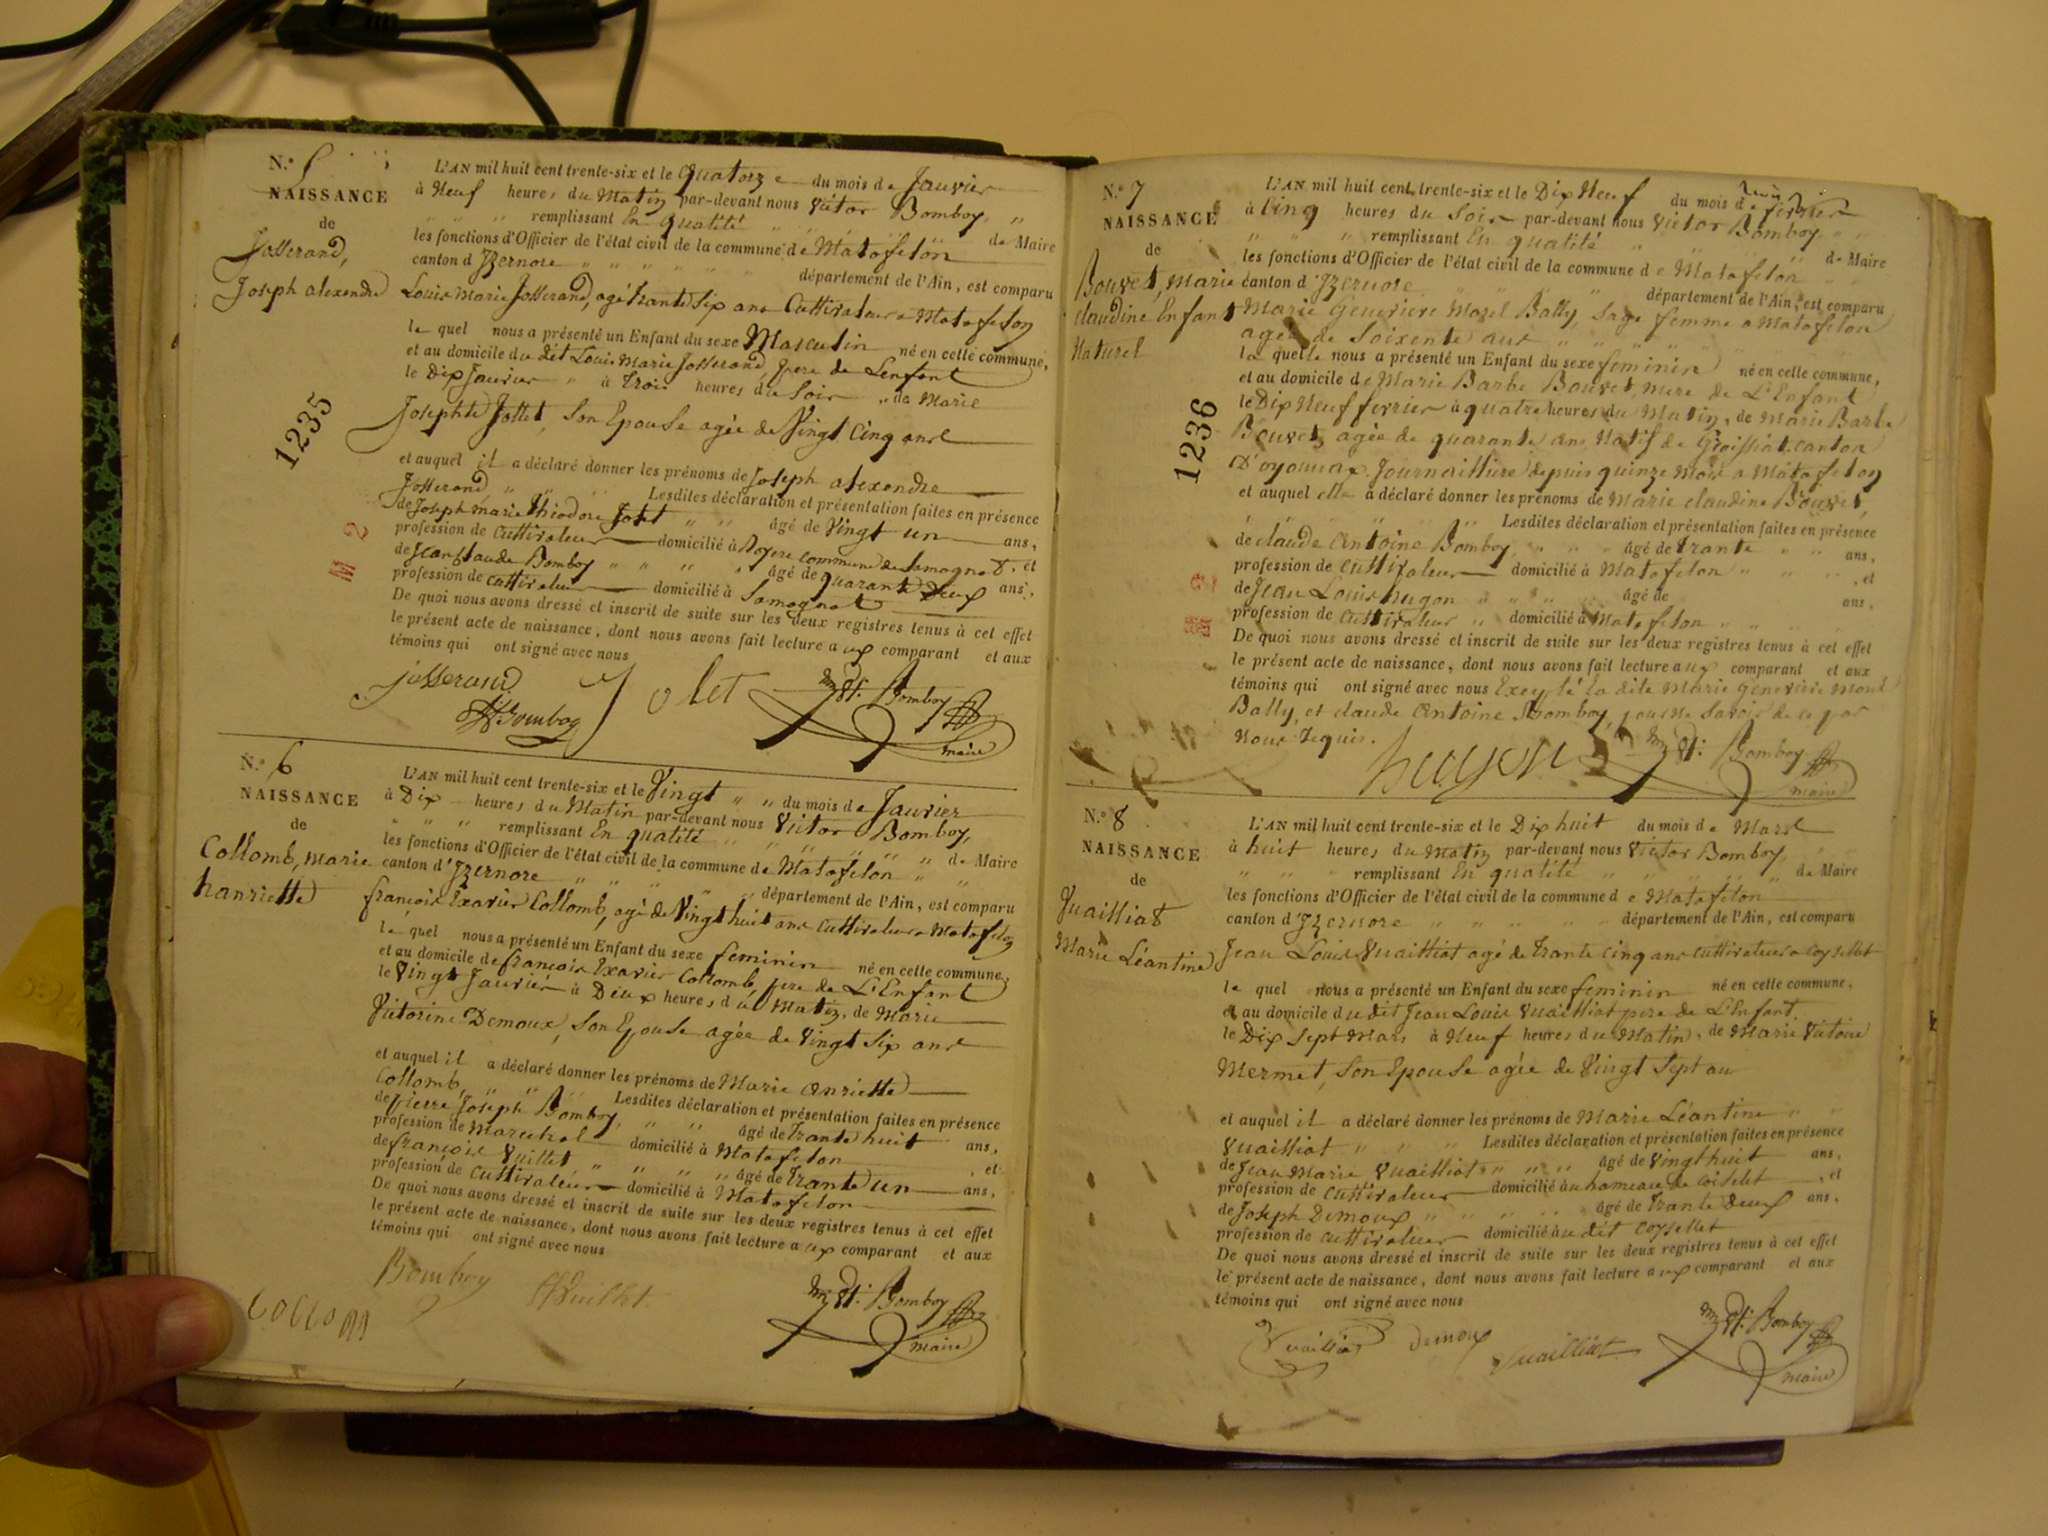 N.° 5
NAISSANCE
de
Josserand,
Joseph alexendre
L'AN mil huit cent trente-six et le quatorze du mois de Janvier
à Neuf heures du Matin par-devant nous Victor Bomboy,
remplissant En qualité de Maire
les fonctions d'Officier de l'état civil de la commune de Matafelon
canton d'Izernore département de l'Ain, est comparu
Louis Marie Josserand, agé trante Six ans Cuttivateur a Matafelon
le quel nous a présenté un Enfant du sexe Masculin né en cette commune,
et au domicile du dit Louis Marie Josserand, pere de Lenfant
le Dix Janvier à trois heures du Soir de Marie
Josephte Jollet, Son Epouse agée de Vingt Cinq ans
et auquel il a déclaré donner les prénoms de Joseph alexendre
Josserand Lesdites déclaration et présentation faites en présence
de Joseph marie thiodore Jolet âgé de Vingt un ans,
profession de Cuttivateur domicilié à Royere commune de Samognat, et
de Jean Claude Bomboy âgé de quarante Deux ans,
profession de cuttivateur domicilié à Samognat
De quoi nous avons dressé et inscrit de suite sur les deux registres tenus à cet effet
le présent acte de naissance, dont nous avons fait lecture aux comparant et aux
témoins qui ont signé avec nous
josserand Jolet Bomboy
Bomboy maire
1235
M 2
N.° 6
NAISSANCE
de
Collomb, Marie
hanriette
L'AN mil huit cent trente-six et le Vingt du mois de Janvier
à Dix heures du Matin par-devant nous Victor Bomboy,
remplissant En qualité de Maire
les fonctions d'Officier de l'état civil de la commune de Matafelon
canton d'Izernore département de l'Ain, est comparu
françois Exavier Collomb, agé de Vingt huit ans Cuttivateur a Matafelon
le quel nous a présenté un Enfant du sexe feminin né en cette commune,
et au domicile de françois Exavier Collomb, pere de L'Enfant
le Vingt Janvier à Deux heures du Matin, de Marie
Victorine Demoux, Son Epouse agée de Vingt Six ans
et auquel il a déclaré donner les prénoms de Marie anriette
Collomb, Lesdites déclaration et présentation faites en présence
de pierre Joseph Bomboy, âgé de trante huit ans,
profession de Marechal domicilié à Matafelon, et
de françois Vuillet âgé de trante un ans,
profession de Cuttivateur domicilié à Matafelon
De quoi nous avons dressé et inscrit de suite sur les deux registres tenus à cet effet
le présent acte de naissance, dont nous avons fait lecture aux comparant et aux
témoins qui ont signé avec nous
Bomboy Vuillet Bomboy
collom maire
N.° 7
NAISSANCE
de
Bouvet, Marie
claudine Enfant
Naturel
L'AN mil huit cent trente-six et le Dix Neuf du mois de fevrier
à Cinq heures du Soir par-devant nous Victor Bomboy
remplissant En qualité de Maire
les fonctions d'Officier de l'état civil de la commune de Matafelon
canton d'Izernore département de l'Ain, est comparu
Marie Genevieve Morel Bally, Sage femme a Matafelon
agée de Soixente ans
la quelle nous a présenté un Enfant du sexe feminin né en cette commune,
et au domicile de Marie Barbe Bouvet, mere de L'Enfant
le Dix Neuf fevrier à quatre heures du Matin, de Marie Barbe
Bouvet, agée de quarante ans Natif de Groissiat canton
D'oyonnax Journallière depuis quinze Mois a Matafelon
et auquel elle a déclaré donner les prénoms de Marie claudine Bouvet,
Lesdites déclaration et présentation faites en présence
de claude Antoine Bomboy, âgé de trante ans,
profession de Cuttivateur domicilié à Matafelon, et
de Jean Louis hugon âgé de ans,
profession de Cuttivateur domicilié à Matafelon
De quoi nous avons dressé et inscrit de suite sur les deux registres tenus à cet effet
le présent acte de naissance, dont nous avons fait lecture aux comparant et aux
témoins qui ont signé avec nous Exepté La dite Marie genevieve Morel
Bally, et claude Antoine Bomboy, pour ne Savoir de ce par
Nous Requis.
hugon Bomboy
maire
1236
N.° 8
NAISSANCE
de
Vuailliat
Marie Léantine
L'AN mil huit cent trente-six et le Dix huit du mois de Mars
à huit heures du Matin par-devant nous Victor Bomboy,
remplissant En qualité de Maire
les fonctions d'Officier de l'état civil de la commune de Matafelon
canton d'Izernore département de l'Ain, est comparu
Jean Louis Vuailliat agé de trante Cinq ans Cuttivateur a Coysellet
le quel nous a présenté un Enfant du sexe feminin né en cette commune,
et au domicile du dit Jean Louis Vuailliat pere de L'Enfant,
le Dix Sept Mars à Neuf heures du Matin, de Marie Victoire
Mermet, Son Epouse agée de Vingt Sept an
et auquel il a déclaré donner les prénoms de Marie Léantine
Vuailliat Lesdites déclaration et présentation faites en présence
de Jean Marie Vuailliat âgé de Vingt huit ans,
profession de Cuttivateur domicilié au hameau de Coiselet, et
de Joseph Demoux âgé de trante Deux ans,
profession de cuttivateur domicilié au dit Coysellet
De quoi nous avons dressé et inscrit de suite sur les deux registres tenus à cet effet
le présent acte de naissance, dont nous avons fait lecture aux comparant et aux
témoins qui ont signé avec nous
Vuailliat Demoux Vuailliat Bomboy
maire